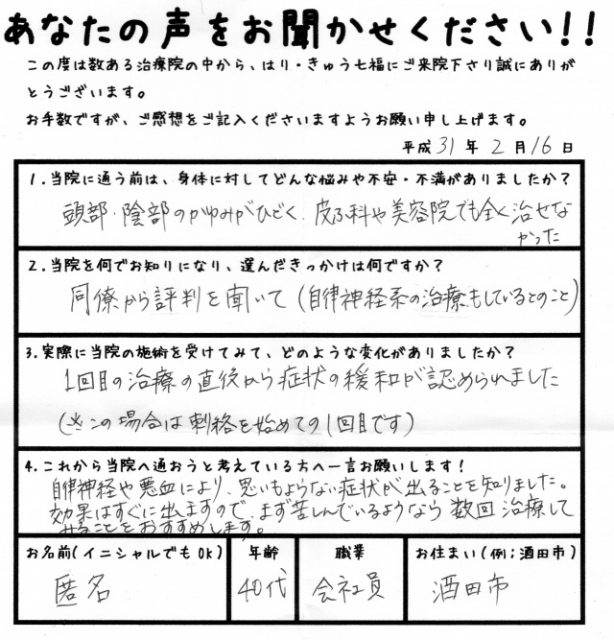 あなたの声をお聞かせください!!
この度は数ある治療院の中から、はり・きゅう七福にご来院下さり誠にありが
とうございます。
お手数ですが、ご感想をご記入くださいますようお願い申し上げます。
平成 31 年 2 月 16 日
1.当院に通う前は、身体に対してどんな悩みや不安・不満がありましたか?
頭部・陰部のかゆみがひどく、皮ふ科や美容院でも全く治せな
かった
2.当院を何でお知りになり、選んだきっかけは何ですか?
同僚から評判を聞いて(自律神経系の治療もしているとのこと)
3.実際に当院の施術を受けてみて、どのような変化がありましたか?
1回目の治療の直後から症状の緩和が認められました
(※この場合は刺絡を始めての1回目です)
4.これから当院へ通おうと考えている方へ一言お願いします!
自律神経や悪血により、思いもよらない症状が出ることを知りました。
効果はすぐに出ますので、まず苦しんでいるようなら数回治療して
みることをおすすめします。
お名前(イニシャルでもOK) 年齢 職業 お住まい(例;酒田市)
匿名 40代 会社員 酒田市